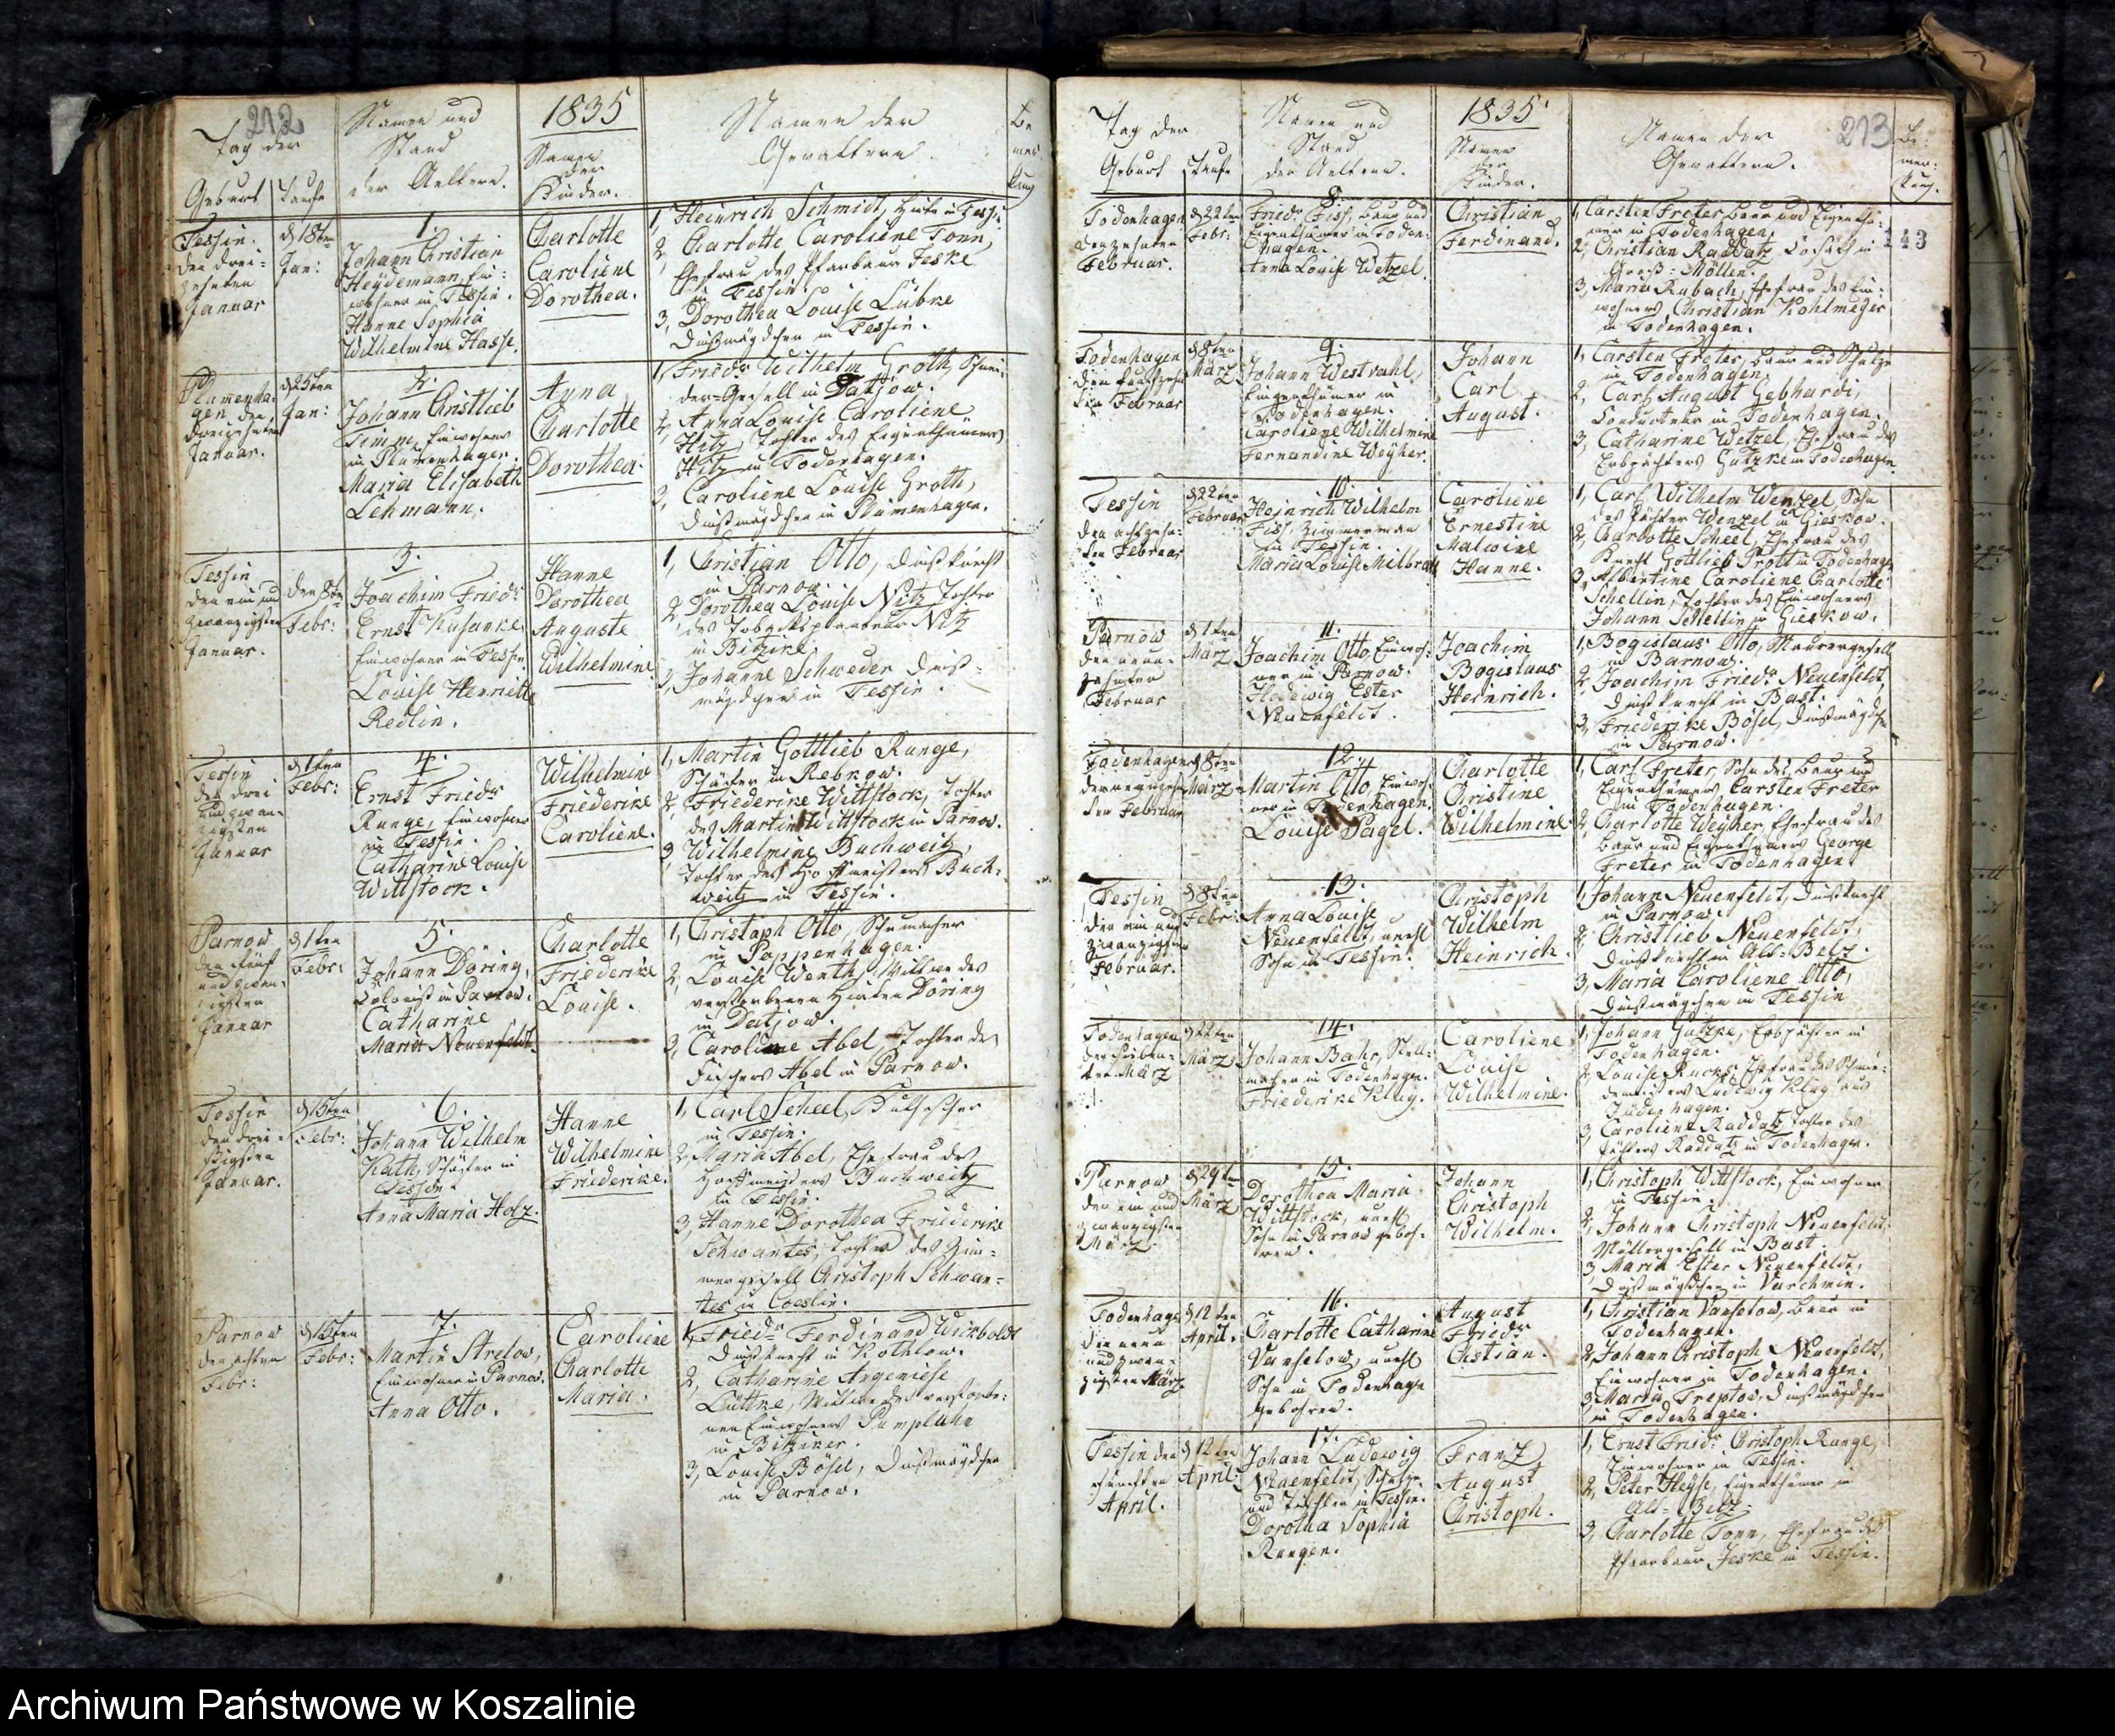 212
1835
Tag der
Geburt
Taufe
Namen und
Stand
der Aeltern.
Namen
der
Kinder.
Namen der
Gevattern.
Be
mer
kung
Tessin.
den drei-
zehnten
Januar
d 18ten
Jan:
1.
Johann Christian
Heydemann, Ein-
wohner in Tessin.
Hanne Sophia
Wilhelmine Hasse.
Charlotte
Caroliene
Dorothea.
1, Heinrich Schmidt, Hirte in Tessin
2, Charlotte Caroliene Tonn,
Ehefrau des Pfarbaur Jeske
in Tessin.
3, Dorothea Louise Lübke
Dienstmägdchen in Tessin.
Plumenha-
gen den
dreizehnten
Januar.
d 25ten
Jan:
2.
Johann Christlieb
Timm, Einwohner
in Plumenhagen.
Maria Elisabeth
Lehmann.
Anna
Charlotte
Dorothea.
1, Friedr Wilhelm Groth, Schnei-
der-Gesell in Datjow.
2, Anna Louise Caroliene
Hitz, Tochter des Eigenthümers
Hitz in Todenhagen.
3, Caroliene Louise Groth,
Dienstmägdchen in Plümenhagen.
Tessin
den ein und
zwanzigsten
Januar.
den 8te
Febr:
3.
Joachim Friedr
Ernst Kusanke,
Einwohner in Tessin
Louise Henriette
Redlin.
Hanne
Dorothea
Auguste
Wilhelmine.
1, Christian Otto, Dienstknecht
in Parnow.
2, Dorothea Louise Nitz Tochter
des Nitz
in Bitziker,
3, Johanne Schweder Dienst-
mägdchen in Tessin.
Tessin
den drei
und zwan-
zigsten
Januar
d 1ten
Febr:
4.
Ernst Friedr
Runge, Einwohner
in Tessin.
Catharine Louise
Wittstock.
Wilhelmine
Friederike
Caroliene.
1, Martin Gottlieb Runge,
Schäfer in Rebkow.
2, Friederike Wittstock, Tochter
des Martin Wittstock in Parnow.
3, Wilhelmine Buchweitz,
Tochter des Hoffmeisters Buch-
weitz in Tessin.
Parnow
den fünf
und zwan-
zigsten
Januar
d 1ten
Febr:
5.
Johann Döring,
Colonist in Parnow.
Catharine
Maria Neuenfeldt.
Charlotte
Friederike
Louise.
1, Christoph Otto, Schumacher
in Poppenhagen.
2, Louise Wenth, Wittwe des
verstorbenen Hirten Döring
in Datjow.
3, Caroliene Abel Tochter des
Fischers Abel in Parnow.
Tessin
den drei-
ßigsten
Januar.
d 15ten
Febr:
6.
Johann Wilhelm
Kath, Schäfer in
Tessin.
Anna Maria Holz.
Hanne
Wilhelmine
Friederike.
1, Carl Scheel,
in Tessin.
2, Maria Abel, Ehefrau des
Hoffmeisters Buchweitz
in Tessin.
3, Hanne Dorothea Friederike
Schwantes, Tochter des Zim-
mergesell Christoph Schwan-
tes in Coeslin.
Parnow
den achten
Febr:
d 15ten
Febr:
7.
Martin Strelow,
Einwohner in Parnow.
Anna Otto.
Caroliene
Charlotte
Maria.
1, Friedr Ferdinand Wikboldt
Dienstknecht in Kothlow.
2, Catharine Angeniese
Lüttke, Wittwe des verstorbe-
nen Einwohners Pumpluhn
in Bitziker.
3, Louise Bösel, Dienstmägdchen
in Parnow.
213
1835.
Tag der
Geburt
Taufe
Namen und
Stand
der Aeltern.
Namen
der
Kinder.
Namen der
Gevattern.
Be-
mer-
kung.
143
Todenhagen
den zehnten
Februar.
d 22ten
Febr:
8.
Friedr Fiss, Baur und
Eigenthümer in Toden-
hagen.
Anna Louise Wetzel.
Christian
Ferdinand.
1, Carsten Freter Baur und Eigenthü-
mer in Todenhagen.
2, Christian Raddatz Cossäth in
Groß-Möllen.
3, Maria Rubach, Ehefrau des Ein-
wohners Christian Kohlmeger
in Todenhagen.
Todenhagen
den funfzehn
ten Februar
d 8ten
März
9.
Johann Westvahl,
Eingenthümer in
Todenhagen.
Caroliene Wilhelmine
Fernandine Weyher.
Johann
Carl
August.
1, Carsten Freter, Baur und Schulze
in Todenhagen.
2, Carl August Gebhardi,
Conducteur in Todenhagen.
3, Catharine Wetzel, Ehefrau des
Erbpächters Gutzke in Todenhagen.
Tessin
den achtzehn-
ten Februar
d 22ten
Februar
10.
Heinrich Wilhelm
Fiss, Zimmerman
in Tessin.
Maria Louise Milbratt
Caroliene
Ernestine
Malwine
Hanne.
1, Carl Wilhelm Wenzel, Sohn
des Pächter Wenzel in Gieskow.
2, Charlotte Scheel, Ehefrau des
Knecht Gottlieb Prott in Todenhagen
3, Albertine Caroliene Charlotte
Schellin, Tochter des Einwohners
Johann Schellin in Gieskow.
Parnow
den neun-
zehnten
Februar
d 1ten
März
11.
Joachim Otto, Einwoh-
ner in Parnow.
Hedewig Ester
Neuenfeldt.
Joachim
Bogislaus
Heinrich.
1, Bogislaus Otto, Maurergesell
in Barnow.
2, Joachim Friedr Neuenfeldt,
Dienstknecht in Bast.
3, Friederike Bösel, Dienstmägdchen
in Parnow.
Todenhagen
den neunzehn
ten Februar
d 8ten
März
12.
Martin Otto, Einwoh-
ner in Todenhagen.
Louise Pagel.
Charlotte
Christine
Wilhelmine.
1, Carl Freter, Sohn des Baur und
Eigenthümers Carsten Freter
in Todenhagen.
2, Charlotte Weyher, Ehefrau des
Baur und Eigenthümers George
Freter in Todenhagen
Tessin
den ein und
zwanzigsten
Februar.
d 8ten
Febr:
13.
Anna Louise
Neuenfeldt, unehl
Sohn in Tessin.
Christoph
Wilhelm
Heinrich.
1, Johann Neuenfeldt, Dienstknecht
in Parnow.
2, Christlieb Neuenfeldt,
Dienstknecht in Alt-Belz.
3, Maria Caroliene Otto,
Dienstmägdchen in Tessin
Todenhagen
den siben-
ten März
d 22ten
März
14.
Johann Bahr, Stell-
macher in Todenhagen.
Friederike Klug.
Caroliene
Louise
Wilhelmine.
1, Johann Gutzke, Erbpächter in
Todenhagen.
2, Louise Rucks, Ehefrau des Schmie-
demeisters Ludwig Klug aus
Güdenhagen.
3, Caroliene Raddatz Tochter des
Pächters Raddatz in Todenhagen.
Parnow
den ein und
zwanzigsten
März
d 29ten
März
15.
Dorothea Maria
Wittstock, unehl
Sohn in Parnow geboh-
ren.
Johann
Christoph
Wilhelm.
1, Christoph Wittstock, Einwohner
in Tessin.
2, Johann Christoph Neuenfeldt,
Müllergesell in Bast.
3, Maria Ester Neuenfeldt,
Dienstmägdchen in Varchmin.
Todenhage
den neun
und zwan-
zigsten März
d 12ten
April.
16.
Charlotte Catharine
Vanselow, unehl
Sohn in Todenhage
gebohren.
August
Friedr
Chstian.
1, Christian Vanselow, Baur in
Todenhagen.
2, Johann Christoph Neuenfeldt,
Einwohner in Todenhagen.
3, Maria Treptow, Dienstmägdchen
in Todenhagen.
Tessin den
fünften
April.
d 12ten
April.
17.
Johann Ludewig
Neuenfeldt, Schulze
und Tischler in Tessin.
Dorothea Sophia
Rungen.
Franz
August
Christoph.
1, Ernst Friedr Christoph Runge,
Einwohner in Tessin.
2, Peter Heyse, Eigenthümer in
Alt-Belz.
3, Charlotte Tonn, Ehefrau des
Pfarrbaur Jeske in Tessin.
Archiwum Państwowe w Koszalinie